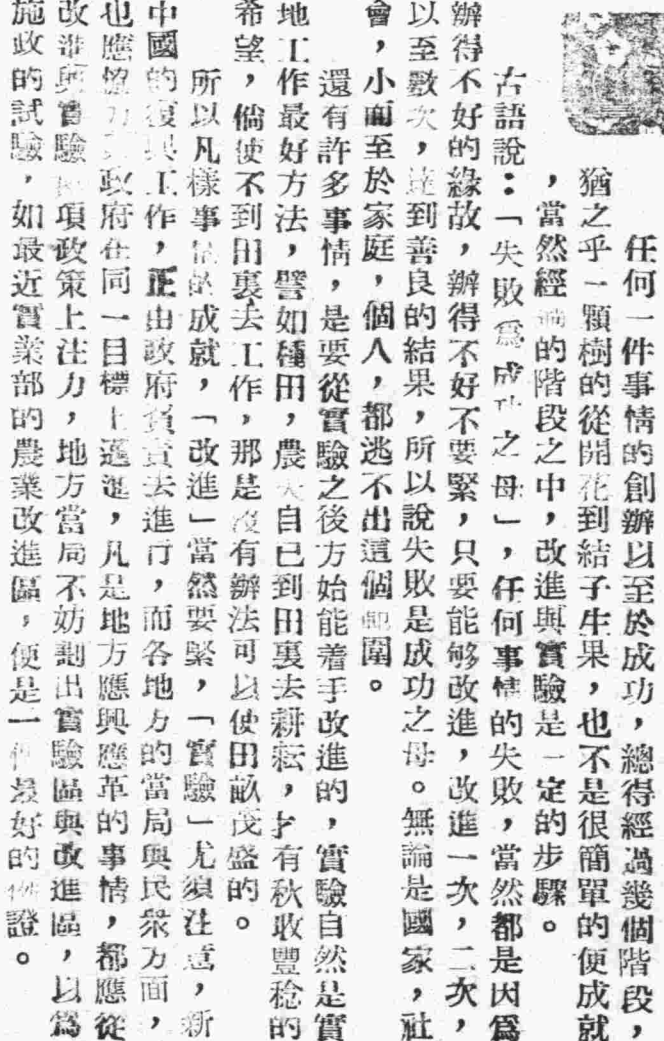 任何一件事情的創辦以至於成功，總得經過幾個階段，
猶之乎一顆樹的從開花到結子生果，也不是很簡單的便成就
，當然經過的階段之中，改進與實驗是一定的步驟。
古語說：「失敗爲成功之母」，任何事情的失敗，當然都是因爲
辦得不好的緣故，辦得不好不要緊，只要能够改進，改進一次，二次，
以至數次，達到善良的結果，所以說失敗是成功之母。無論是國家，社
會，小而至於家庭，個人，都逃不出這個範圍。
還有許多事情，是要從實驗之後方始能着手改進的，實驗自然是實
地工作最好方法，譬如種田，農夫自己到田裏去耕耘，才有秋收豐稔的
希望，倘使不到田裏去工作，那是沒有辦法可以使田畝茂盛的。
所以凡樣事情的成就，「改進」當然要緊，「實驗」尤須注意，新
中國的復興工作，正由政府負責去進行，而各地方的當局與民衆方面，
也應協力政府在同一目標上邁進，凡是地方應興應革的事情，都應從
改進與實驗項政策上注力，地方當局不妨劃出實驗區與改進區，以爲
施政的試驗，如最近實業部的農業改進區，便是一件最好的例證。